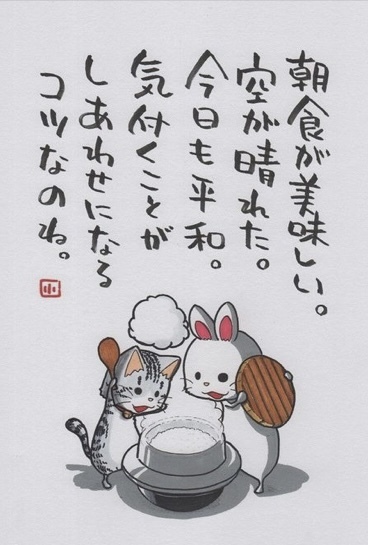 朝食が美味しい。
空が晴れた。
今日も平和。
気付くことが
しあわせになる
コツなのね。
小